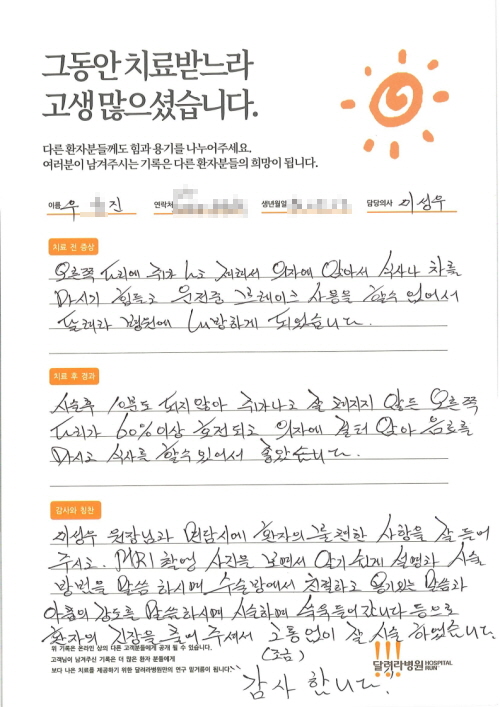 그동안 치료받느라
고생 많으셨습니다.
다른 환자분들께도 힘과 용기를 나누어주세요.
여러분이 남겨주시는 기록은 다른 환자분들의 희망이 됩니다.
이름 우 진 연락처 생년월일 담당의사 이성우
치료 전 증상
오른쪽 다리에 쥐가 나고 저려서 의자에 앉아서 식사나 차를
마시기 힘들고 운전중 브레이크 사용을 할수 없어서
달려라 병원에 내방하게 되었습니다.
치료 후 경과
시술후 10분도 되지않아 쥐가나고 잘 펴지지 않든 오른쪽
다리가 60%이상 호전되고 의자에 걸터 앉아 음료를
마시고 식사를 할수있어서 좋았습니다.
감사와 칭찬
이성우 원장님과 면담시에 환자의 불편한 사항을 잘 들어
주시고. MRI 촬영 사진을 보면서 알기쉽게 설명과 시술
방법을 말씀 하시며 수술방에서 친절하고 용기있는 말씀과
아픔의 강도를 말씀하시며 시술하며 쑥쑥들어갑니다 등으로
환자의 긴장을 풀어 주셔서 고통없이 잘 시술 하였습니다.
(조금)
위 기록은 온라인 상의 다른 고객들에게 공개 될 수 있습니다.
고객님이 남겨주신 기록은 더 많은 환자 분들에게
보다 나은 치료를 제공하기 위한 달려라병원만의 연구 밑거름이 됩니다.
감사 합니다.
달려라병원 HOSPITAL RUN